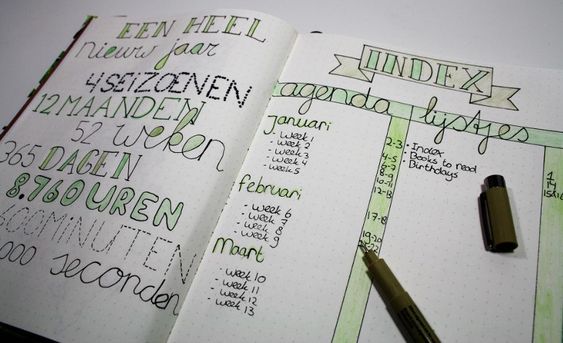 EEN HEEL
nieuw jaar
4 SEIZOENEN
12 MAANDEN
52 weken
365 DAGEN
8.760 UREN
600 MINUTEN
000 seconden
INDEX
agenda
Januari
- Week 1
- Week 2
- Week 3
- Week 4
- Week 5
2-3
4-5
8-9
10-11
12-13
Februari
- Week 6
- Week 7
- Week 8
- Week 9
17-18
19-20
Maart
- Week 10
- Week 11
- Week 12
- Week 13
lijstjes
- Index
- Books to read
- Birthdays
1
14